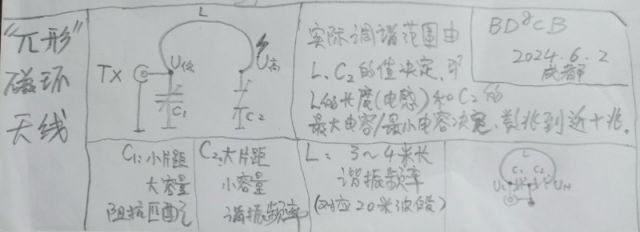 "π形"
磁环
天线
L
TX
U低
U高
C₁
C₂
实际调谐范围由
L、C₂的值决定,即
L的长度(电感)和C₂的
最大电容/最小电容决定,数兆到近十兆。
BD8CB
2024.6.2
成都
C₁:小片距
大容量
阻抗匹配
C₂:大片距
小容量
谐振频率
L: 3~4米长
谐振频率
(对应20米波段)
C₁ C₂